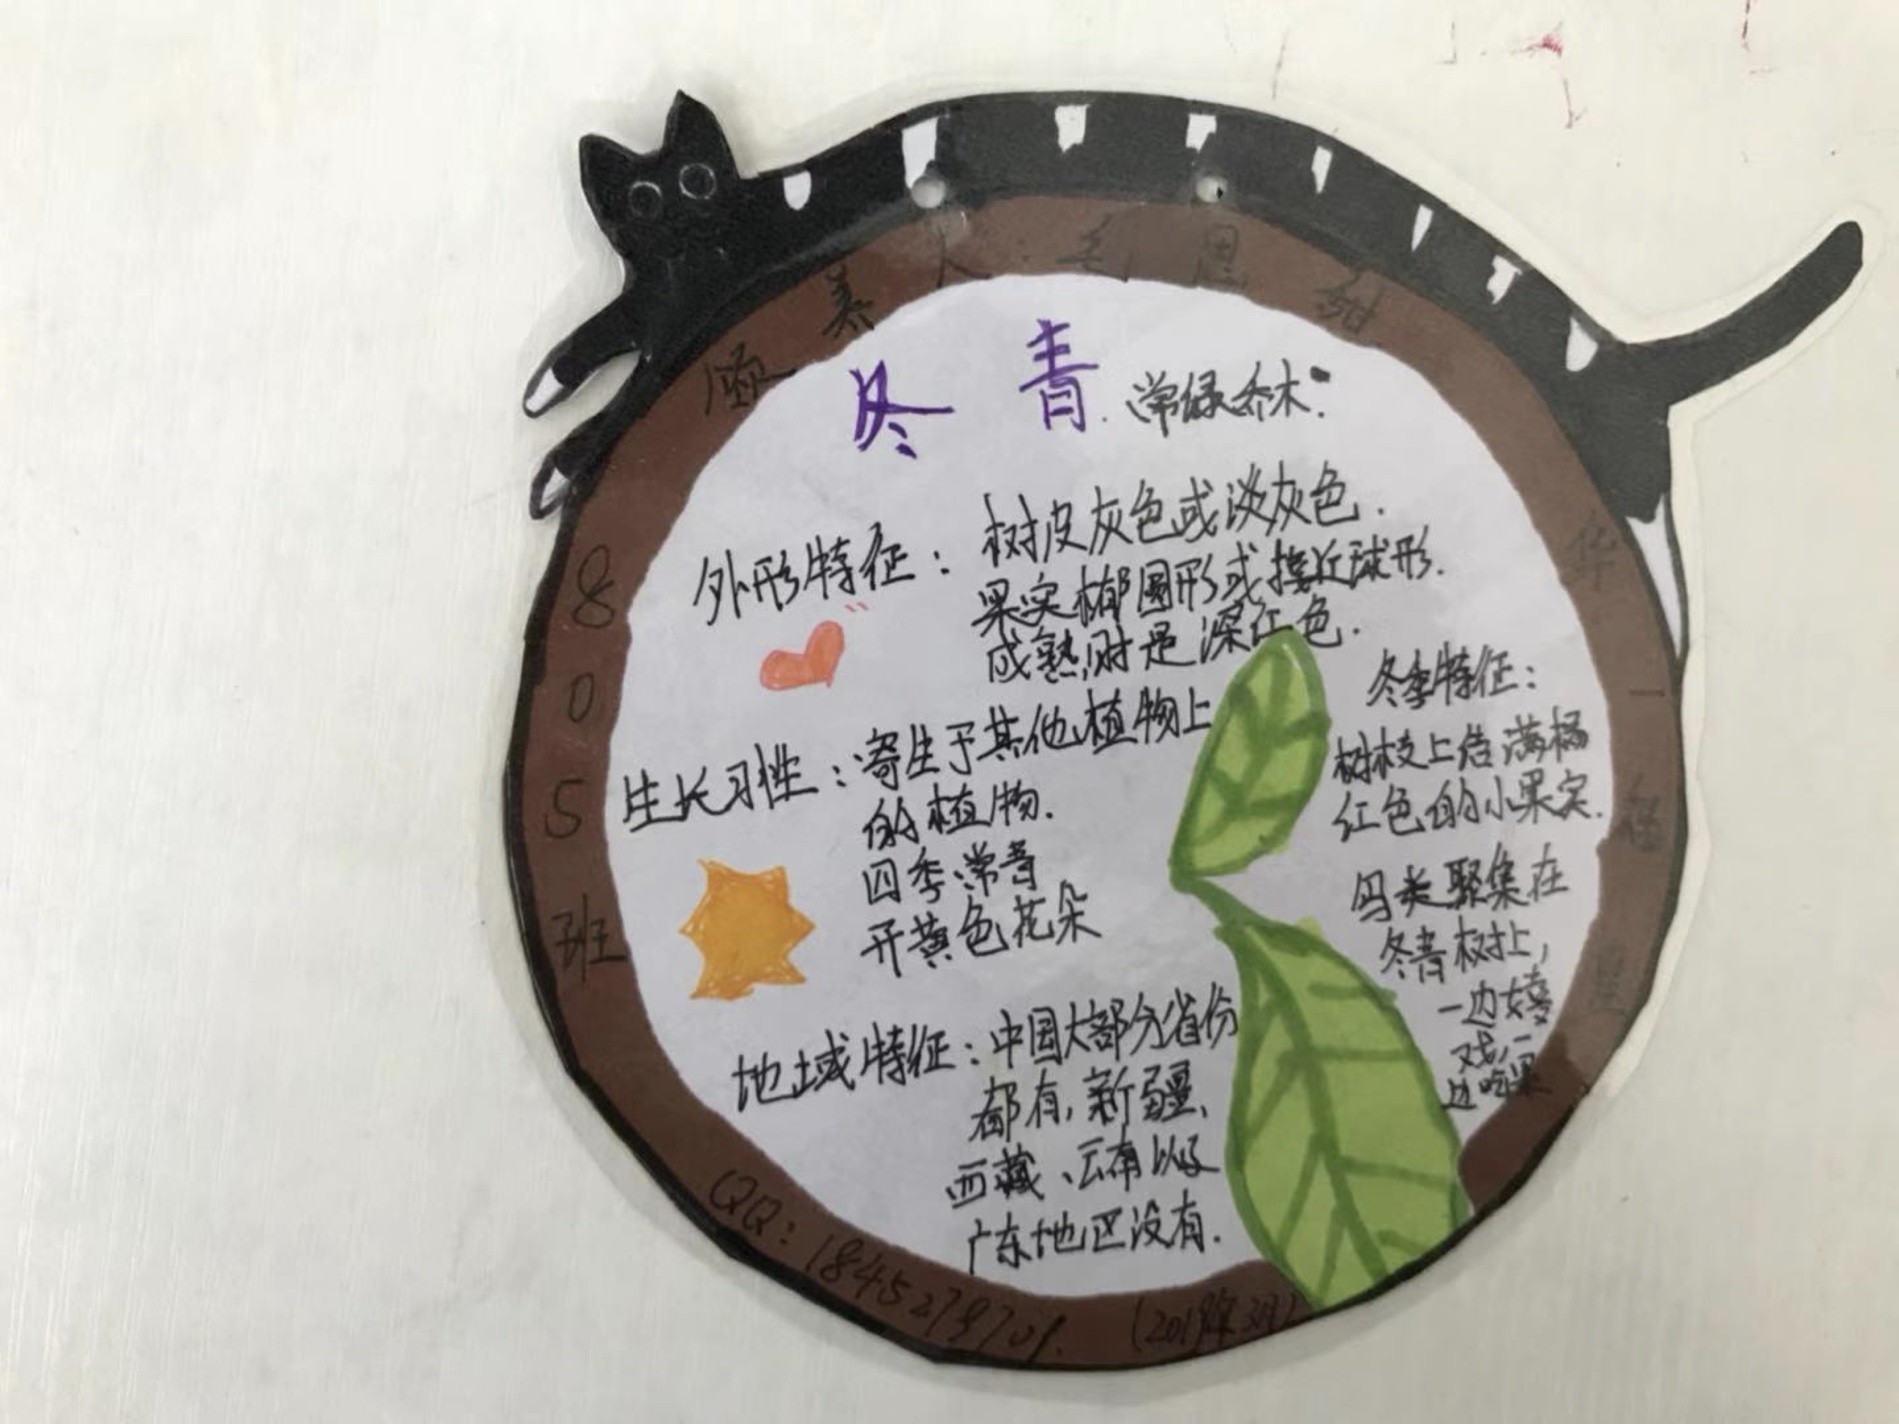 领养人：毛思甜
冬青.常绿乔木.
外形特征：树皮灰色或淡灰色.
果实椭圆形或接近球形.
成熟时是深红色.
生长习性：寄生于其他植物上
的植物.
四季常青
开黄色花朵
地域特征：中国大部分省份
都有,新疆、
西藏、云南以及
广东地区没有.
冬季特征：
树枝上结满橘
红色的小果实.
鸟类聚集在
冬青树上,
一边嬉
戏,一
边吃果
8
0
5
班
华
一
QQ: